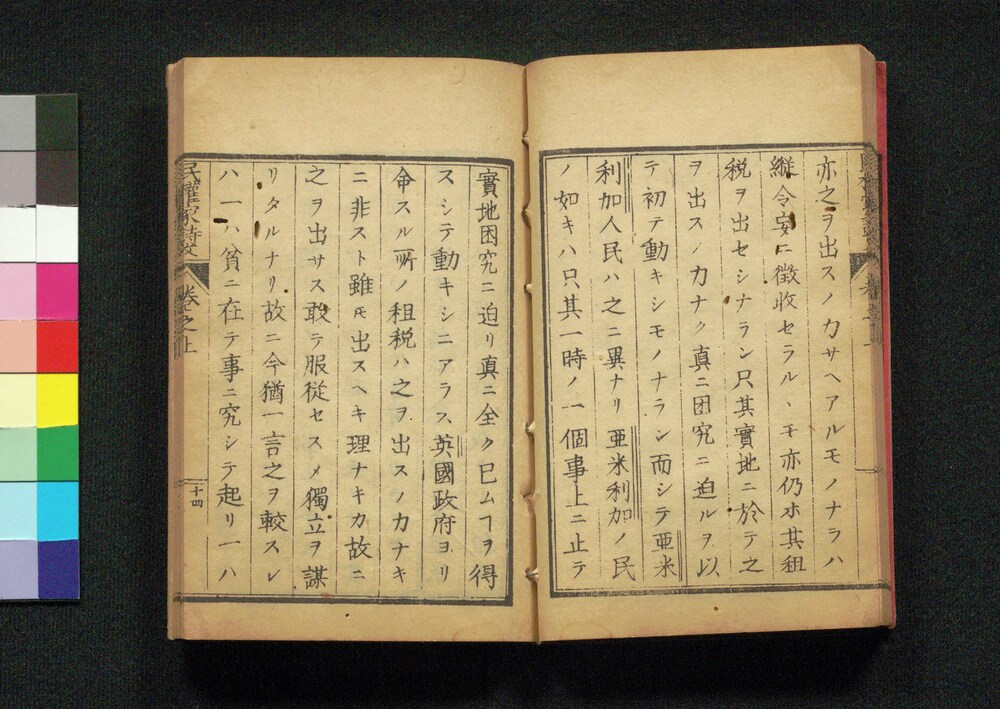 亦之ヲ出スノ力サヘアルモノナラハ
縱令妄ニ徴收セラルヽモ亦仍ホ其租
税ヲ出セシナラン只其實地ニ於テ之
ヲ出スノ力ナク真ニ困究ニ迫ルヲ以
テ初テ動キシモノナラン而シテ亜米
利加人民ハ之ニ異ナリ亜米利加ノ民
ノ如キハ只其一時ノ一個事上ニ止テ
實地困究ニ迫リ真ニ全ク已ムヿヲ得
スシテ動キシニアラス英國政府ヨリ
命スル所ノ租税ハ之ヲ出スノ力ナキ
ニ非スト雖𪜈出スヘキ理ナキカ故ニ
之ヲ出サス敢テ服從セスメ獨立ヲ謀
リタルナリ故ニ今猶一言之ヲ較スレ
ハ一ハ貧ニ在テ事ニ究シテ起リ一ハ
民權家 卷之上
十四